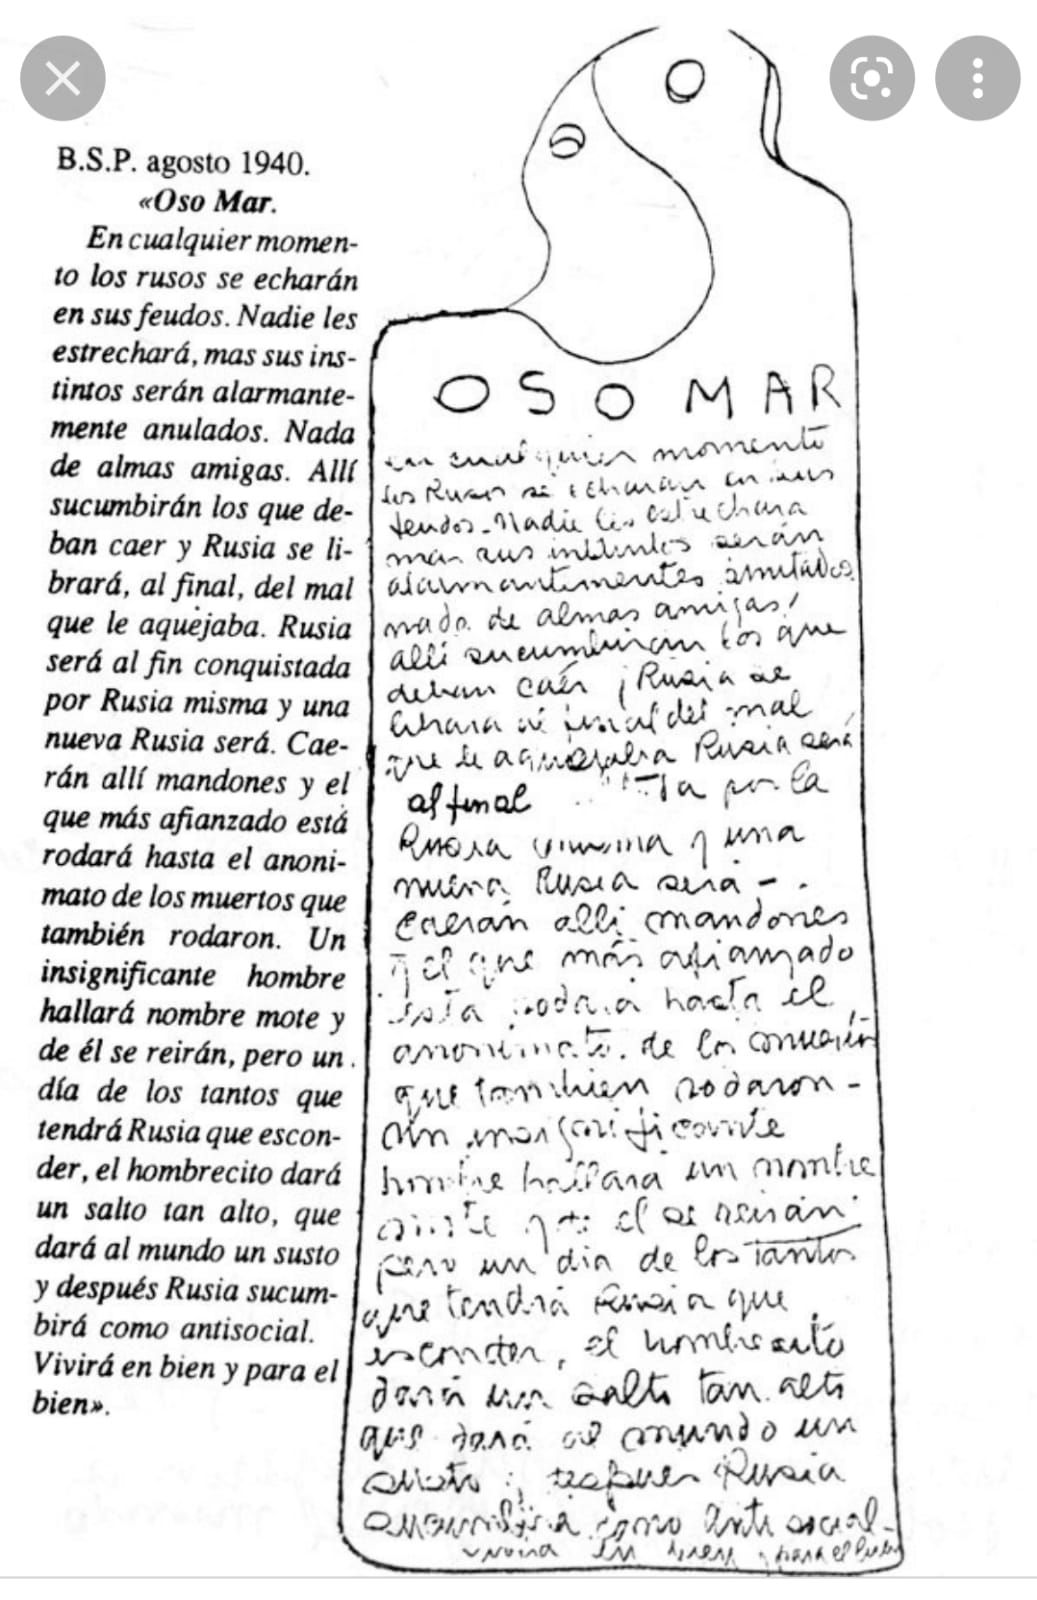 B.S.P. agosto 1940.
«Oso Mar.
En cualquier momen-
to los rusos se echarán
en sus feudos. Nadie les
estrechará, mas sus ins-
tintos serán alarmante-
mente anulados. Nada
de almas amigas. Allí
sucumbirán los que de-
ban caer y Rusia se li-
brará, al final, del mal
que le aquejaba. Rusia
será al fin conquistada
por Rusia misma y una
nueva Rusia será. Cae-
rán allí mandones y el
que más afianzado está
rodará hasta el anoni-
mato de los muertos que
también rodaron. Un
insignificante hombre
hallará nombre mote y
de él se reirán, pero un
día de los tantos que
tendrá Rusia que escon-
der, el hombrecito dará
un salto tan alto, que
dará al mundo un susto
y después Rusia sucum-
birá como antisocial.
Vivirá en bien y para el
bien».
OSO MAR
en cualquier momento
los Rusos se echaran en sus
feudos - Nadie les estrechara
mas sus instintos serán
alarmantementes
nada de almas amigas!
allí sucumbiran los que
deban caer ¡Rusia se
librara al final del mal
que le aquejaba Rusia será
al final por la
Rusia misma y una
nueva Rusia sera -
Caerán alli mandones
y el que más afianzado
esta rodara hasta el
anonimato de los muertos
que tambien rodaron -
un insignificante
hombre hallara un nombre
mote y de el se reirán
pero un dia de los tantos
que tendrá Rusia que
esconder, el hombresito
dará un salto tan alto
que dará al mundo un
susto y despues Rusia
sucumbira como anti social -
vivira en bien y para el bien